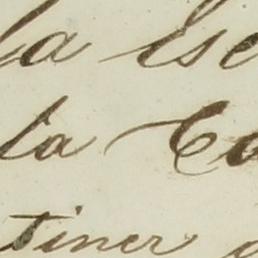 la Esc
la Co
tiner a